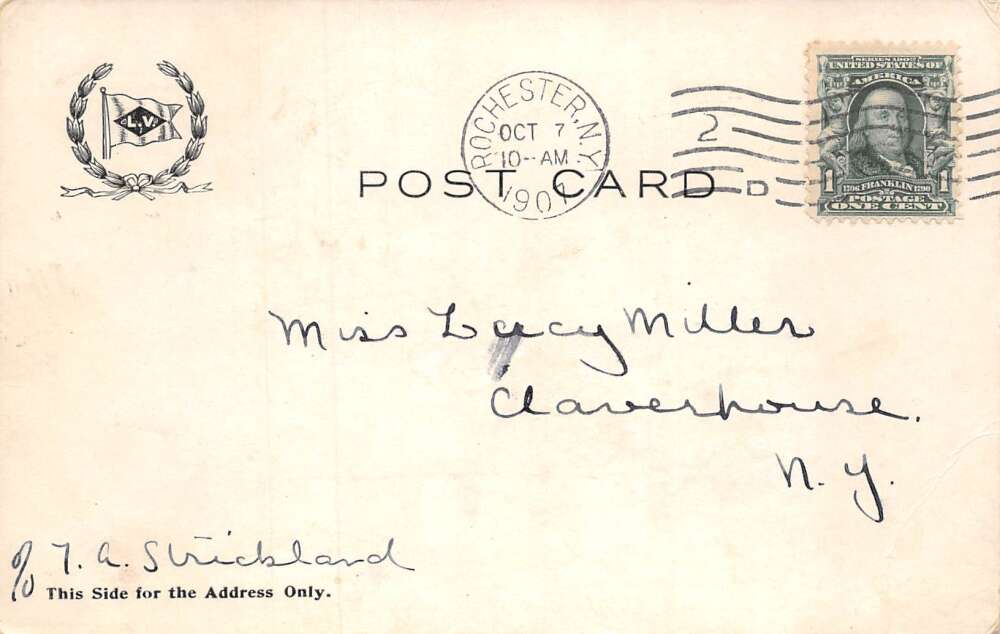 L.V.
ROCHESTER, N.Y.
OCT 7
10-- AM
1907
2
D
SERIES 1902
UNITED STATES OF
AMERICA
1 1706 FRANKLIN 1790 1
POSTAGE
ONE CENT
POST CARD
Miss Lucy Miller
Claverhouse.
N. Y.
% T. A. Strickland
This Side for the Address Only.